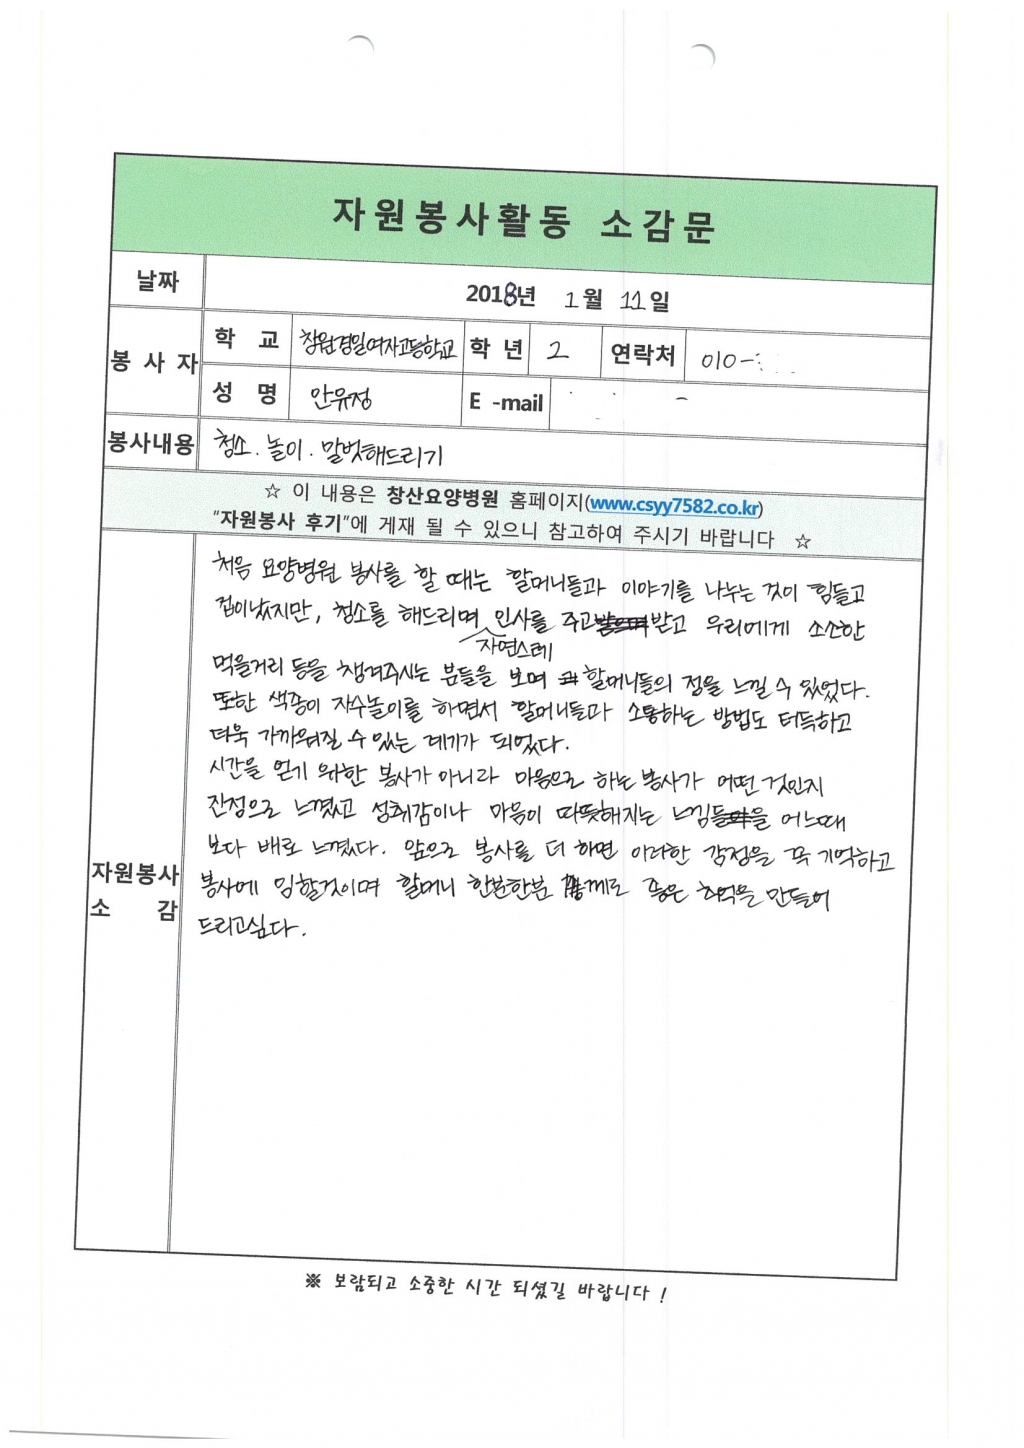 자원봉사활동 소감문
날짜 2018년 1월 11일
봉사자 학교 창원경일여자고등학교 학년 2 연락처 010-
성명 안유정 E -mail
봉사내용 청소. 놀이. 말벗해드리기
☆ 이 내용은 창산요양병원 홈페이지(www.csyy7582.co.kr)
"자원봉사 후기"에 게재 될 수 있으니 참고하여 주시기 바랍니다 ☆
자원봉사
소 감
처음 요양병원 봉사를 할 때는 할머니들과 이야기를 나누는 것이 힘들고
겁이났지만, 청소를 해드리며 자연스레 인사를 주고받고 우리에게 소소한
먹을거리 등을 챙겨주시는 분들을 보며 할머니들의 정을 느낄 수 있었다.
또한 색종이 자수놀이를 하면서 할머니들과 소통하는 방법도 터득하고
더욱 가까워질 수 있는 계기가 되었다.
시간을 얻기 위한 봉사가 아니라 마음으로 하는 봉사가 어떤 것인지
진정으로 느꼈고 성취감이나 마음이 따뜻해지는 느낌들을 어느때
보다 배로 느꼈다. 앞으로 봉사를 더 하면 이러한 감정을 꼭 기억하고
봉사에 임할것이며 할머니 한분한분 께도 좋은 추억을 만들어
드리고싶다.
※ 보람되고 소중한 시간 되셨길 바랍니다 !